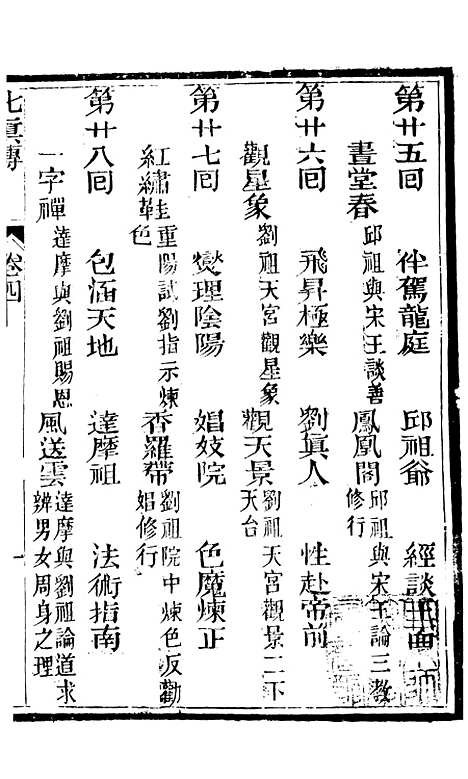 第廿五囘 伴駕龍庭 邱祖爺 經談
晝堂春 邱祖與宋王談善 鳳凰閣 邱祖與宋王論三教修行
第廿六囘 飛昇極樂 劉眞人 性赴帝前
觀星象 劉祖天宮觀星象 觀天景 劉祖天宮觀景二下天台
第廿七囘 燮理陰陽 娼妓院 色魔煉正
紅繡鞋 重陽試劉指示煉色 香羅帶 劉祖院中煉色反勸娼修行
第廿八囘 包涵天地 達摩祖 法術指南
一字禪 達摩與劉祖賜恩 風送雲 達摩與劉祖論道求辨男女周身之理
七眞傳 卷四 一